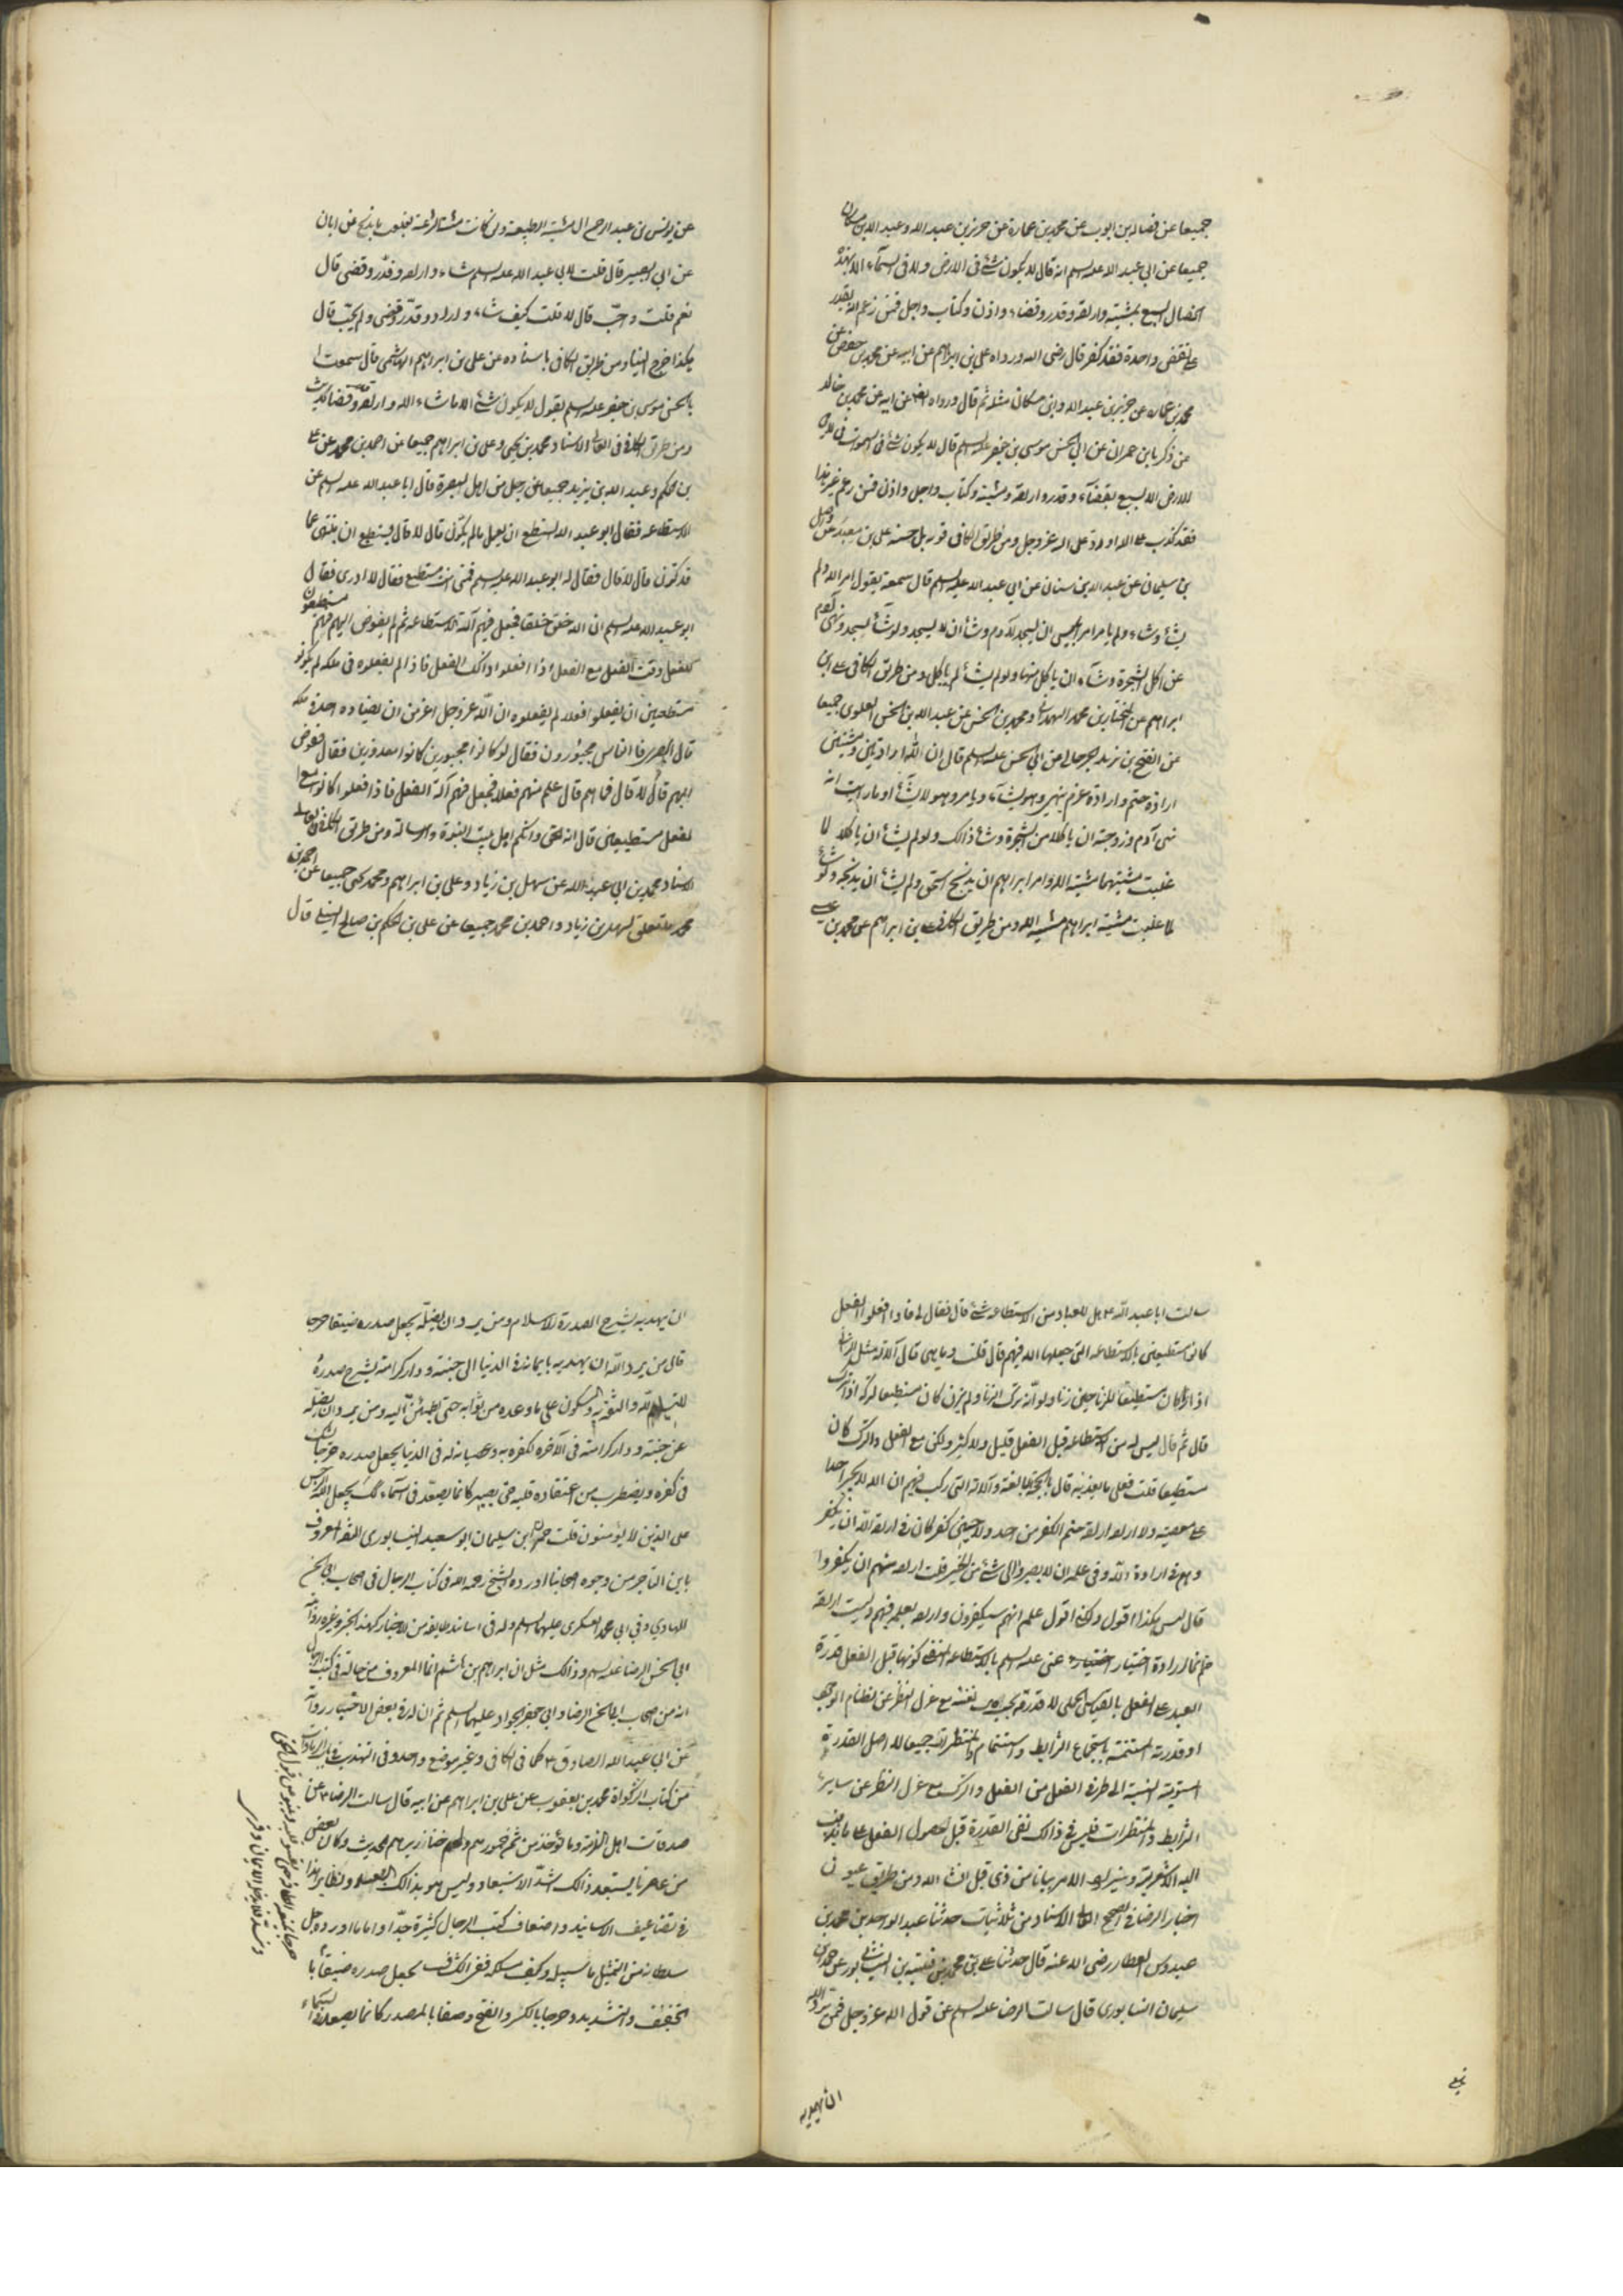 جميعا عن فضالة بن ايوب عن محمد بن عمارة عن حريز بن عبد الله وعبد الله بن مسكان
جميعا عن ابي عبد الله عليه السلم انه قال لا يكون شئ في الارض ولا في السماء الا بهذه
الخصال السبع بمشية وارادة وقدر وقضاء واذن وكتاب واجل فمن زعم انه يقدر
على نقض واحدة فقد كفر قال رضى الله ورواه على بن ابراهيم عن ابيه عن محمد بن حفص عن
محمد بن عمارة عن حريز بن عبد الله وابن مسكان مثله ثم قال ورواه ايضا عن ابيه عن محمد بن خالد
عن زكريا بن عمران عن ابي الحسن موسى بن جعفر عليه السلم قال لا يكون شئ في السموات ولا في
الارض الا بسبع بقضاء وقدر وارادة ومشية وكتاب واجل واذن فمن زعم غير هذا
فقد كذب على الله او رد على الله عز وجل ومن طريق الكافي على بن معبد عن واصل
بن سليمان عن عبد الله بن سنان عن ابي عبد الله عليه السلم قال سمعته يقول امر الله ولم
يشأ وشاء ولم يامر امر ابليس ان يسجد لآدم وشأ ان لا يسجد ولو شأ لسجد ونهى آدم
عن اكل الشجرة وشاء ان ياكل منها ولو لم يشأ لم ياكل ومن طريق الكافي على بن
ابراهيم عن المختار بن محمد الهمداني ومحمد بن الحسن عن عبد الله بن الحسن العلوي جميعا
عن الفتح بن يزيد الجرجاني عن ابي الحسن عليه السلم قال ان لله ارادتين ومشيتين
ارادة حتم وارادة عزم ينهى وهو يشاء ويامر وهو لا يشاء او ما رايت انه
نهى آدم وزوجته ان ياكلا من الشجرة وشأ ذالك ولو لم يشأ ان ياكلا لما
غلبت مشيتهما مشية الله وامر ابراهيم ان يذبح اسحق ولم يشأ ان يذبحه ولو شأ
لما غلبت مشية ابراهيم مشية الله ومن طريق الكافي على بن ابراهيم عن محمد بن عيسى
عن يونس بن عبد الرحمن
عن ابي بصير قال قلت لابي عبد الله عليه السلم شاء واراد وقدر وقضى قال
نعم قلت واحب قال لا قلت كيف شاء واراد وقدر وقضى ولم يحب قال
هكذا خرج الينا ومن طريق الكافي باسناده عن على بن ابراهيم الهاشمى قال سمعت ا
با الحسن موسى بن جعفر عليه السلم يقول لا يكون شئ الا ما شاء الله واراد وقدر وقضى
ومن طريق الكافي في العالي الاسناد محمد بن يحيى وعلى بن ابراهيم جميعا عن احمد بن محمد عن على
بن الحكم وعبد الله بن يزيد جميعا عن رجل من اهل البصرة قال ابا عبد الله عليه السلم عن
الاستطاعه فقال ابو عبد الله تستطع ان تعمل ما لم يكون قال لا قال فتستطيع ان تنتهى عما
قد كون قال لا قال فقال له ابو عبد الله عليه السلم فمتى انت مستطيع فقال لا ادرى فقال
ابو عبد الله عليه السلم ان الله خلق خلقا فجعل فيهم آلة الاستطاعة ثم لم يفوض اليهم فهم مستطيعون
للفعل وقت الفعل مع الفعل اذا فعلوا ذالك الفعل فاذا لم يفعلوه في ملكه لم يكونوا
مستطيعين ان يفعلوا فعلا لم يفعلوه ان الله عز وجل اعز من ان يضاده احد في ملكه
قال البصرى فالناس مجبورون فقال لو كانوا مجبورين كانوا معذورين فقال ففوض
اليهم قال لا قال فما هم قال علم منهم فعلا فجعل فيهم آلة الفعل فاذا فعلوا كانوا مع ا
لفعل مستطيعين قال انه الحق وانكم اهل بيت النبوة والرسالة ومن طريق الكافي في عالى
الاسناد محمد بن ابي عبد الله عن سهل بن زياد وعلى بن ابراهيم ومحمد بن يحيى جميعا عن احمد بن
محمد سهل بن زياد واحمد بن محمد جميعا عن على بن الحكم بن صالح النيلى قال
سالت ابا عبد الله ع هل للعباد من الاستطاعه شئ قال فقال لي فاذا فعلوا الفعل
كانوا مستطيعين بالاستطاعه التى جعلها الله فيهم قال قلت وما هى قال آلالة مثل الزنا
اذا زنى كان مستطيعا للزنا حين زنا ولو انه ترك الزنا ولم يزن كان مستطيعا لتركه اذا ترك
قال ثم قال ليس له من الاستطاعه قبل الفعل قليل ولا كثير ولكن مع الفعل والترك كان
مستطيعا قلت فعلى ما يعذبه قال بالحجة البالغة والآلة التى ركب فيهم ان الله لا يجبر احدا
على معصيته ولا اراد ارادة حتم الكفر من احد ولا حين كفر كان في ارادة الله ان يكفر
وهم في ارادة الله وفي علمه ان لا يصيروا الى شئ من الخير قلت اراد منهم ان يكفروا
قال ليس هكذا اقول ولكن اقول علم انهم سيكفرون واراد بعلمه فيهم وليست ارادة
حتم انما ارادة اختيار عنى عليه السلم بالاستطاعه المنفى كونها قبل الفعل قدرة
العبد على الفعل بالقياس الى نفسه مع عزل النظر عن نظام الوجود
او قدرته المستتمة باجتماع الشرايط واستتمام المنتظرات جميعا لا اصل القدرة
المستوية النسبة الى طرفي الفعل من الفعل والترك مع عزل النظر عن ساير
الشرايط والمنتظرات فليس في ذالك نفى القدرة قبل حصول الفعل على ما يذهب
اليه الاشعرية وسنزيد الامر بيانا من ذى قبل ان شاء الله ومن طريق عيون
اخبار الرضا في الصحيح العالى الاسناد من ثلاثيات حدثنا عبد الواحد بن محمد بن
عبدوس العطار رضى الله عنه قال حدثنا على بن محمد بن قتيبة النيسابورى عن حمدان بن
سليمان النيسابورى قال سالت الرضا عليه السلم عن قول الله عز وجل فمن يرد الله
ان يهديه
ان يهديه يشرح الصدرة للاسلام ومن يرد ان يضله يجعل صدره ضيقا حرجا
قال من يرد الله ان يهديه بايمانه في الدنيا الى جنته ودار كرامته يشرح صدره
للتسليم لله والثقة به والسكون على ما وعده من ثوابه حتى يطمئن اليه ومن يرد ان يضله
عن جنته ودار كرامته في الآخره لكفره به وعصيانه له في الدنيا يجعل صدره حرجا يشك
في كفره ويضطرب من اعتقاده قلبه حتى يصير كانما يصعد في السماء كذلك يجعل الله الرجس
على الذين لا يؤمنون قلت حمدان بن سليمان ابو سعيد النيسابورى الثقة المعروف
بابن التاجر من وجوه اصحابنا اورده الشيخ رحمه الله في كتاب الرجال في اصحاب ابي الحسن
الهادي وفي ابي محمد العسكرى عليهما السلم وله في اسانيد طايفة من الاخبار كهذا الخبر وغيره رواية
ابي الحسن الرضا عليه السلم وذالك مثل ان ابراهيم بن هاشم انما المعروف من حاله في كتب الرجال
انه من اصحاب ابي الحسن الرضا وابي جعفر الجواد عليهما السلم ثم ان له في بعض الاخبار رواية
عن ابي عبد الله الصادق ع كما في الكافي وغير موضع واحد وفي التهذيب في باب الزيادات
من كتاب الزكواة محمد بن يعقوب عن على بن ابراهيم عن ابيه قال سالت الرضا ع عن
صدقات اهل الذمة وما يؤخذ من ثمن خمورهم ولحم خنازيرهم الحديث وكان بعض
من عاصرنا يستبعد ذالك اشد الاستبعاد وليس هو بذالك البعيد ونظاير هذا
في تضاعيف الاسانيد واضعاف كتب الرجال كثيرة جدا واما ما اورده جل
سلطانه من التمثيل ما سبيله وكيف مسلكه ففي الكشاف يجعل صدره ضيقا با
لتخفيف والتشديد وحرجا بالكسر والفتح وصفا بالمصدر كانما يصعد في السماء